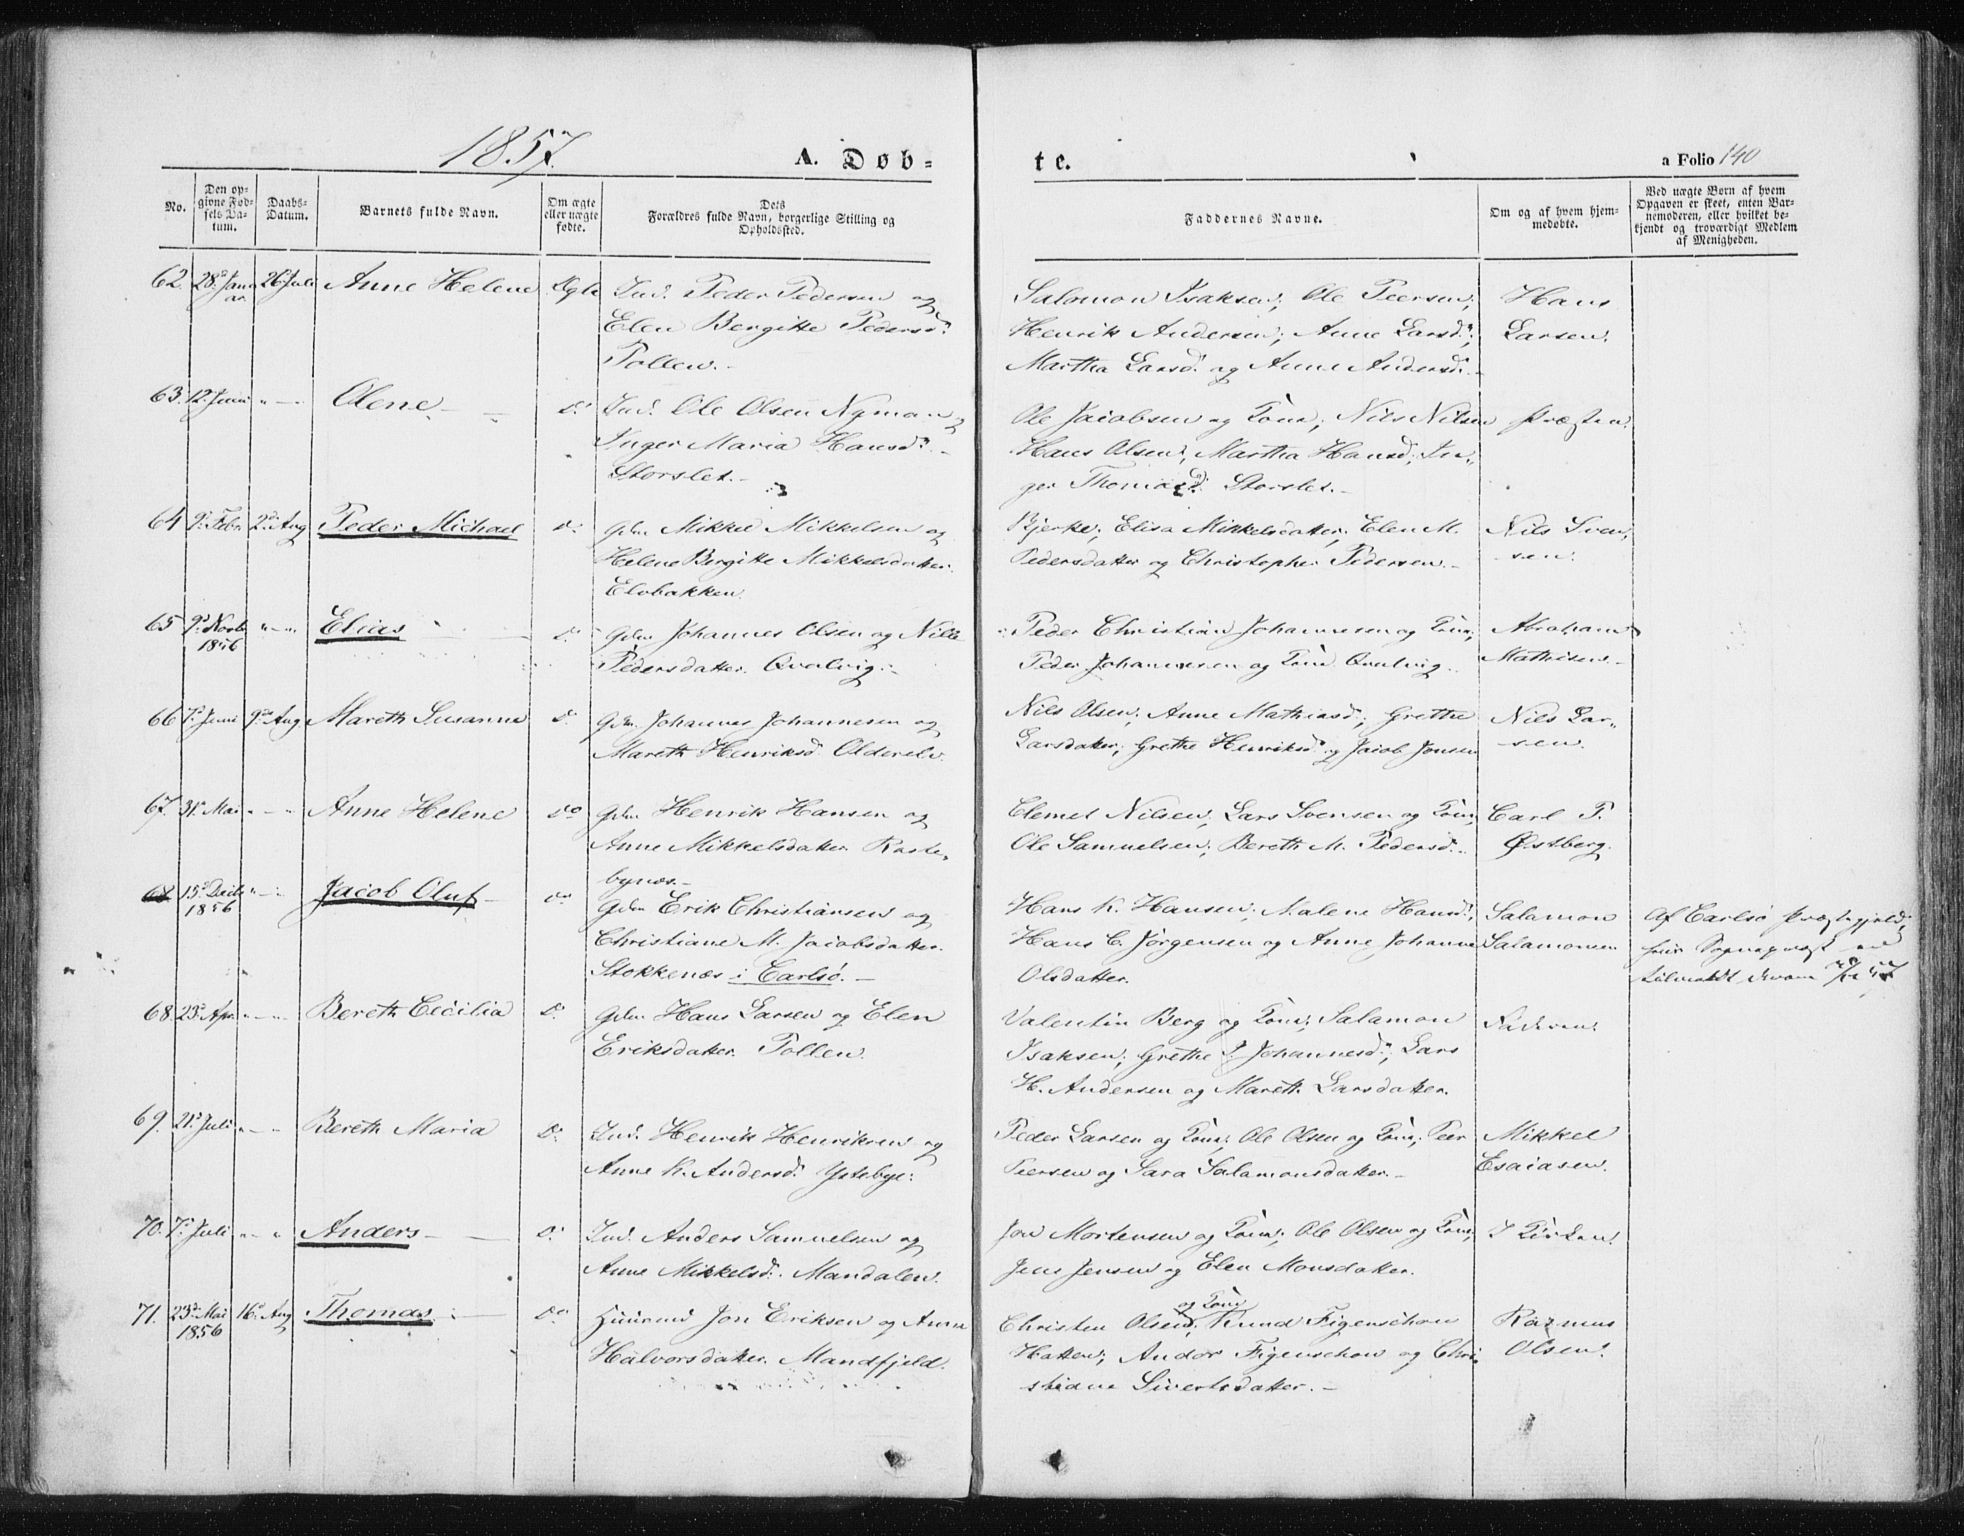 1857.
A. Døb-
te.
a Folio 140
No.
Den op-
givne Fød-
sels Da-
tum.
Daabs-
Datum.
Barnets fulde Navn.
Om ægte
eller uægte
fødte.
Dets
Forældres fulde Navn, borgerlige Stilling og
Opholdssted.
Faddernes Navne.
Om og af hvem hjem-
medøbte.
Ved uægte Børn af hvem
Opgaven er skeet, enten Bar-
nemoderen, eller hvilket be-
kjendt og troværdigt Medlem
af Menigheden.
62. 28. Janu 26 Juli Anne Helene Ægte Ind. Peder Pedersen og Salomon Isaksen; Ole Peersen; Hans
ar.
Elen Bergitte Pedersd. Henrik Andersen; Anne Larsd.; Larsen.
Pollen. Martha Larsd. og Anne Andersd.
63. 12. Juni " — " Olene. D. Ind. Ole Olsen Nyman og Ole Jacobsen og Kone; Nils Nilsen Præsten.
Inger Maria Hansd. Hans Olsen; Martha Hansd.; In-
Storslet. ger Thomasd. Storslet.
64 9. Febr 2. Aug Peder Michael D. Gdm. Mikkel Mikkelsen og Bjerke; Elisa Mikkelsdatter; Elen M. Nils Sven-
Helene Birgitte Mikkelsdatter. Pedersdatter og Christopher Pedersen. sen.
Elvbakken.
65 9. Novb " — " Elias D. Gdm. Johannes Olsen og Nille Peder Christian Johannesen og Kone; Abraham
1856
Pedersdatter. Qvalvig. Peder Johannesen og Kone Qvalvig. Mathisen.
66 7. Juni 9. Aug Mareth Susanne D. Gdm. Johannes Johannesen og Nils Olsen; Anne Mathiasd.; Grethe Nils Lar-
Mareth Henriksd. Olderelv. Larsdatter; Grethe Henriksd. og Jacob Jonsen sen.
67. 31. Mai " — " Anne Helene Do Gdm. Henrik Hansen og Clemet Nilsen; Lars Svensen og Kone; Carl P.
Anne Mikkelsdatter Raste- Ole Samuelsen; Bereth M. Pedersd. Østberg.
bynæs.
68 15. Decb " — " Jacob Oluf Do Gdm. Erik Christiansen og Hans K. Hansen; Malene Hansd.; Salamon Af Carlsø Præstegjeld;
1856
Christiane M. Jacobsdatter. Hans C. Jørgensen og Anne Johanne Salamonsen
Stokkenæs i Carlsø. Olsdatter.
68. 23. Apr. " — " Bereth Cecilia D. Gdm. Hans Larsen og Elen Valentin Berg og Kone; Salamon Faderen.
Eriksdatter. Pollen. Isaksen; Grethe J. Johannesd.; Lars
H. Andersen og Mareth Larsdatter.
69. 21. Juli " — " Bereth Maria D. Ind. Henrik Henriksen og Peder Larsen og Kone; Ole Olsen og Kone; Peer Mikkel
Anne K. Andersd. Ystebye. Peersen og Sara Salamonsdatter. Esaiasen.
70. 7. Juli " — " Anders D. Ind. Anders Samuelsen og Jon Mortensen og Kone; Ole Olsen og Kone; I Kirken.
Anne Mikkelsd. Mandalen. Jens Jensen og Elen Monsdatter.
71. 23. Mai 16. Aug Thomas Do Huusmd Jon Eriksen og Anne Christen Olsen og Kone; Knud Figenschou Rasmus
1856
Halvorsdatter. Mandfjeld. Hatten; Andor Figenschou og Chri- Olsen.
stiane Sivertsdatter.